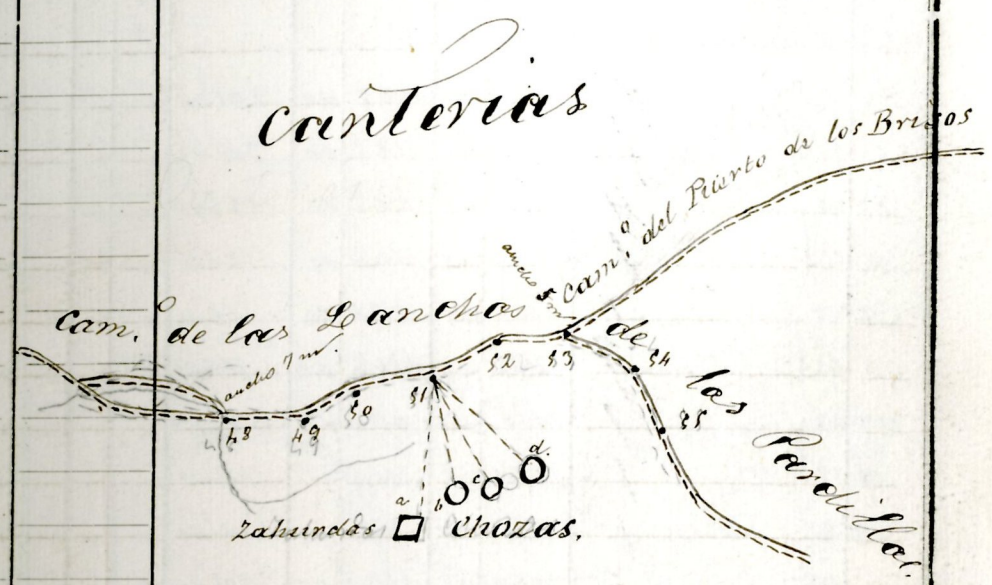 Canterias
Cam.º del Puerto de los Brisos
ancho 5 m
Cam.º de las Lanchos de las Pardillas.
ancho 7 m
48
49
50
51
52
53
54
55
a
b
c
d.
Zahurdas
Chozas.